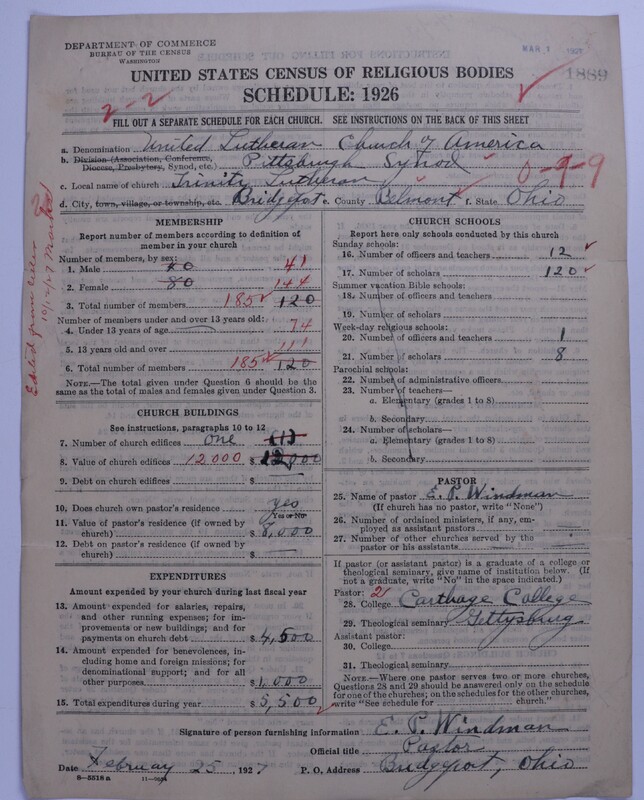 DEPARTMENT OF COMMERCE
BUREAU OF THE CENSUS
WASHINGTON
MAR 1 1927
1889
UNITED STATES CENSUS OF RELIGIOUS BODIES
SCHEDULE: 1926
2-2
FILL OUT A SEPARATE SCHEDULE FOR EACH CHURCH. SEE INSTRUCTIONS ON THE BACK OF THIS SHEET
a. Denomination United Lutheran Church of America
b. Division (Association, Conference, Diocese, Presbytery, Synod, etc.) Pittsburgh Synod
0-9-9
c. Local name of church Trinity Lutheran
d. City, town, village, or township, etc. Bridgeport e. County Belmont f. State Ohio
MEMBERSHIP
Report number of members according to definition of member in your church
Number of members, by sex:
1. Male 40 41
2. Female 80 144
3. Total number of members 185 120
Number of members under and over 13 years old:
4. Under 13 years of age 74
5. 13 years old and over 111
6. Total number of members 185 120
NOTE.—The total given under Question 6 should be the same as the total of males and females given under Question 3.
CHURCH BUILDINGS
See instructions, paragraphs 10 to 12
7. Number of church edifices one (1)
8. Value of church edifices 12000 $ 12,000
9. Debt on church edifices $
10. Does church own pastor's residence? yes
Yes or No
11. Value of pastor's residence (if owned by church) $ 8,000
12. Debt on pastor's residence (if owned by church) $
EXPENDITURES
Amount expended by your church during last fiscal year
13. Amount expended for salaries, repairs, and other running expenses; for improvements or new buildings; and for payments on church debt $ 4,500
14. Amount expended for benevolences, including home and foreign missions; for denominational support; and for all other purposes $ 1,000
15. Total expenditures during year $ 5,500
CHURCH SCHOOLS
Report here only schools conducted by this church
Sunday schools:
16. Number of officers and teachers 12
17. Number of scholars 120
Summer vacation Bible schools:
18. Number of officers and teachers
19. Number of scholars
Week-day religious schools:
20. Number of officers and teachers 1
21. Number of scholars 8
Parochial schools:
22. Number of administrative officers
23. Number of teachers—
a. Elementary (grades 1 to 8)
b. Secondary
24. Number of scholars—
a. Elementary (grades 1 to 8)
b. Secondary
PASTOR
25. Name of pastor E. P. Windman
(If church has no pastor, write "None")
26. Number of ordained ministers, if any, employed as assistant pastors
27. Number of other churches served by the pastor or his assistants
If pastor (or assistant pastor) is a graduate of a college or theological seminary, give name of institution below. (If not a graduate, write "No" in the space indicated.)
Pastor: 2
28. College Carthage College
29. Theological seminary Gettysburg
Assistant pastor:
30. College
31. Theological seminary
NOTE.—Where one pastor serves two or more churches, Questions 28 and 29 should be answered only on the schedule for one of the churches; on the schedules for the other churches, write "See schedule for church."
Signature of person furnishing information E. P. Windman
Official title Pastor
Date February 25, 1927 P. O. Address Bridgeport, Ohio
8—5518 a
Edited from letter